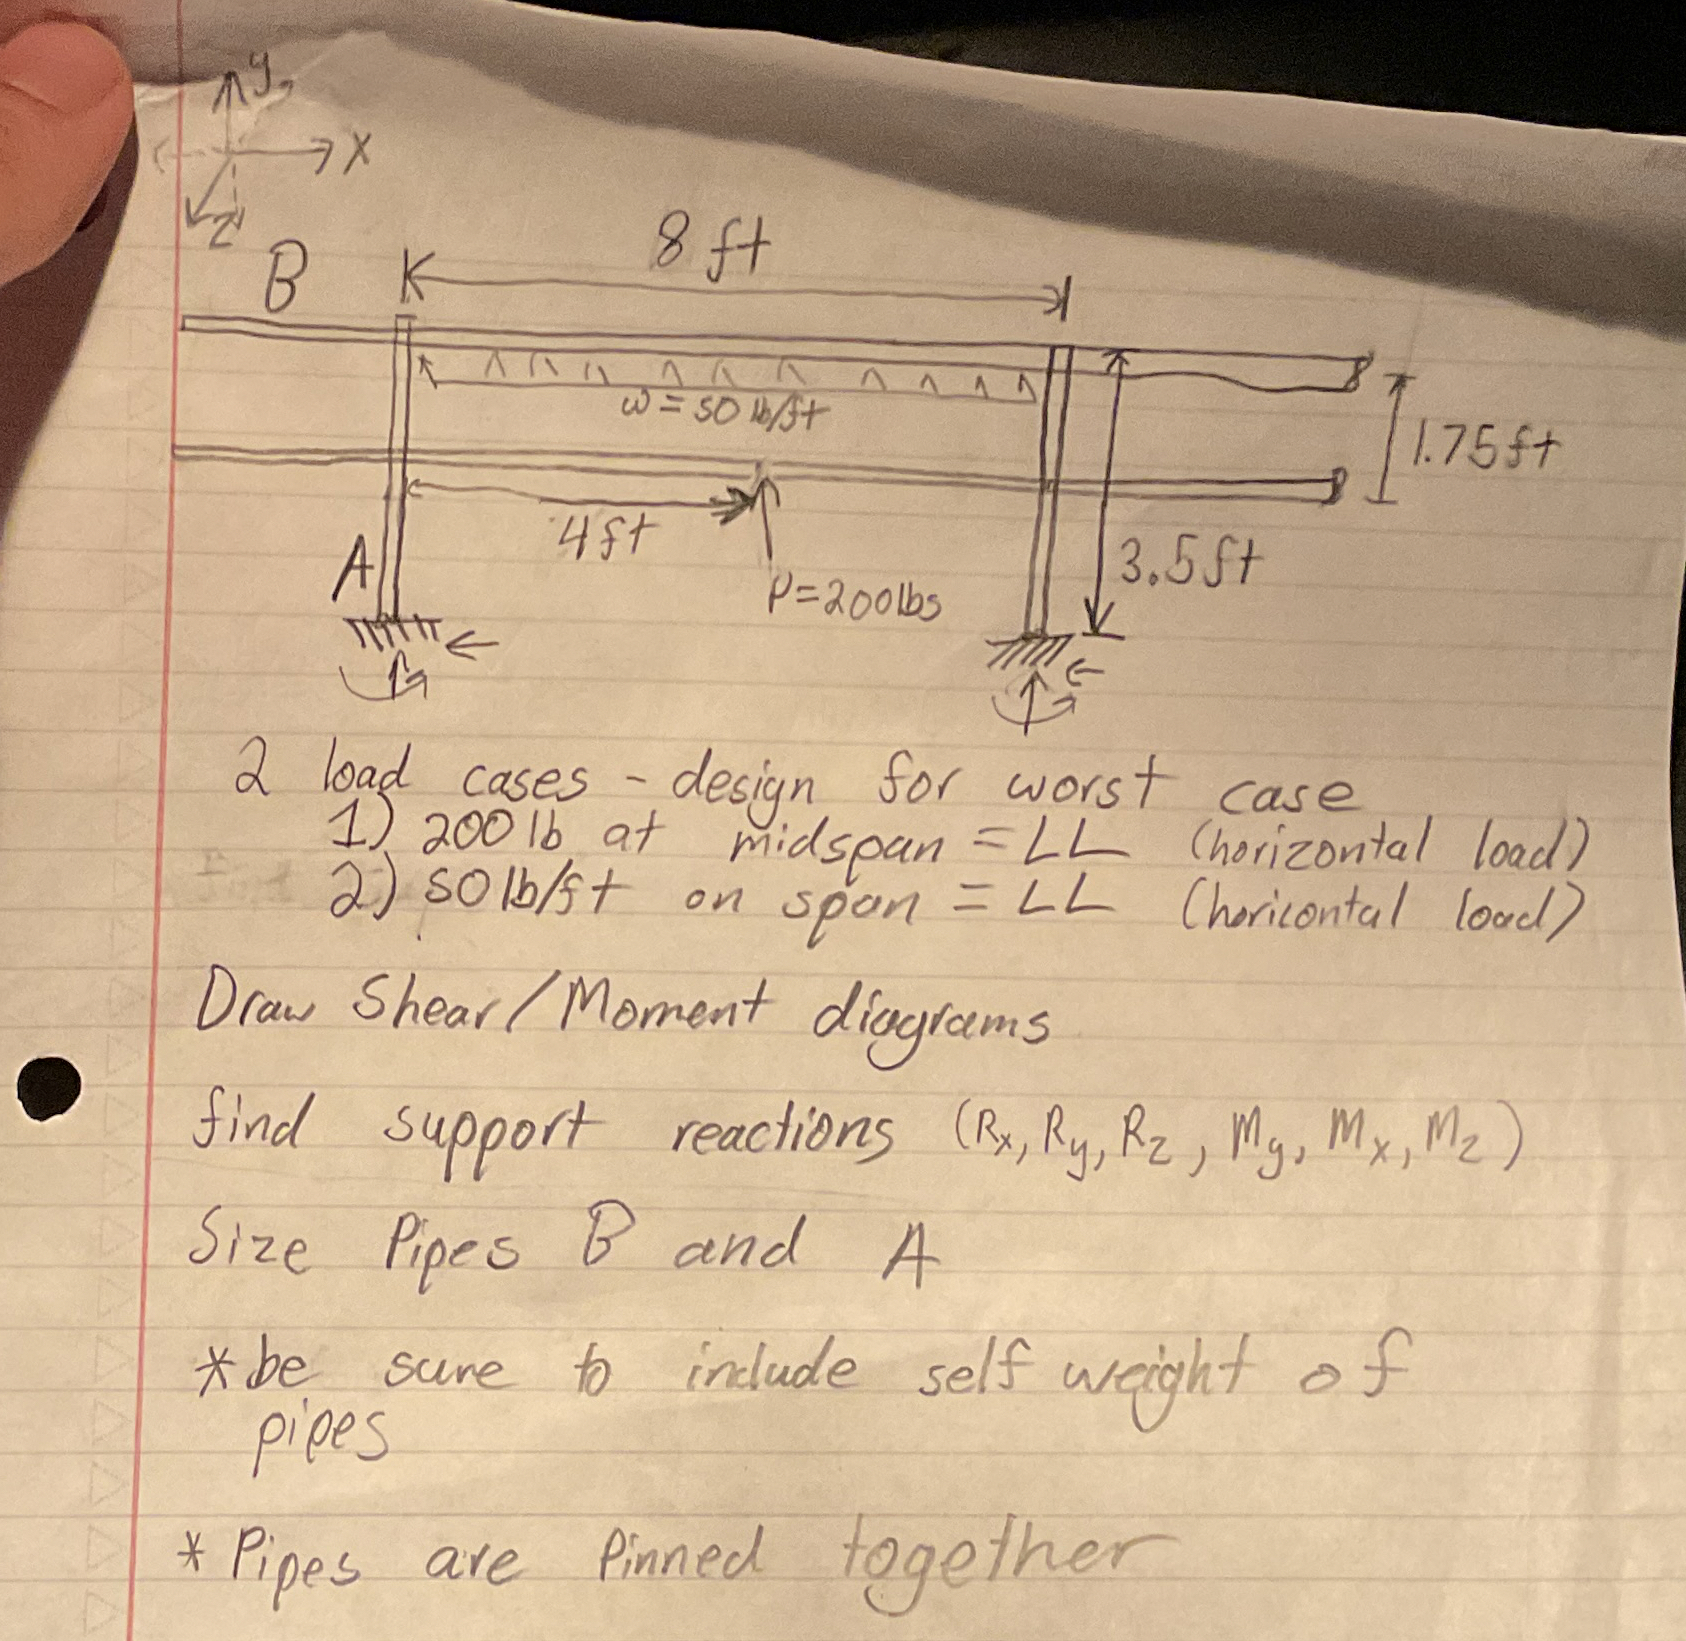 y
x
z
B
8 ft
w = 50 lb/ft
1.75 ft
4 ft
A
P=200lbs
3.5 ft
2 load cases - design for worst case
1) 200 lb at midspan = LL (horizontal load)
2) 50 lb/ft on span = LL (horicontal load)
Draw Shear/Moment diagrams
find support reactions (Rx, Ry, Rz, My, Mx, Mz)
Size Pipes B and A
* be sure to include self weight of
pipes
* Pipes are Pinned together